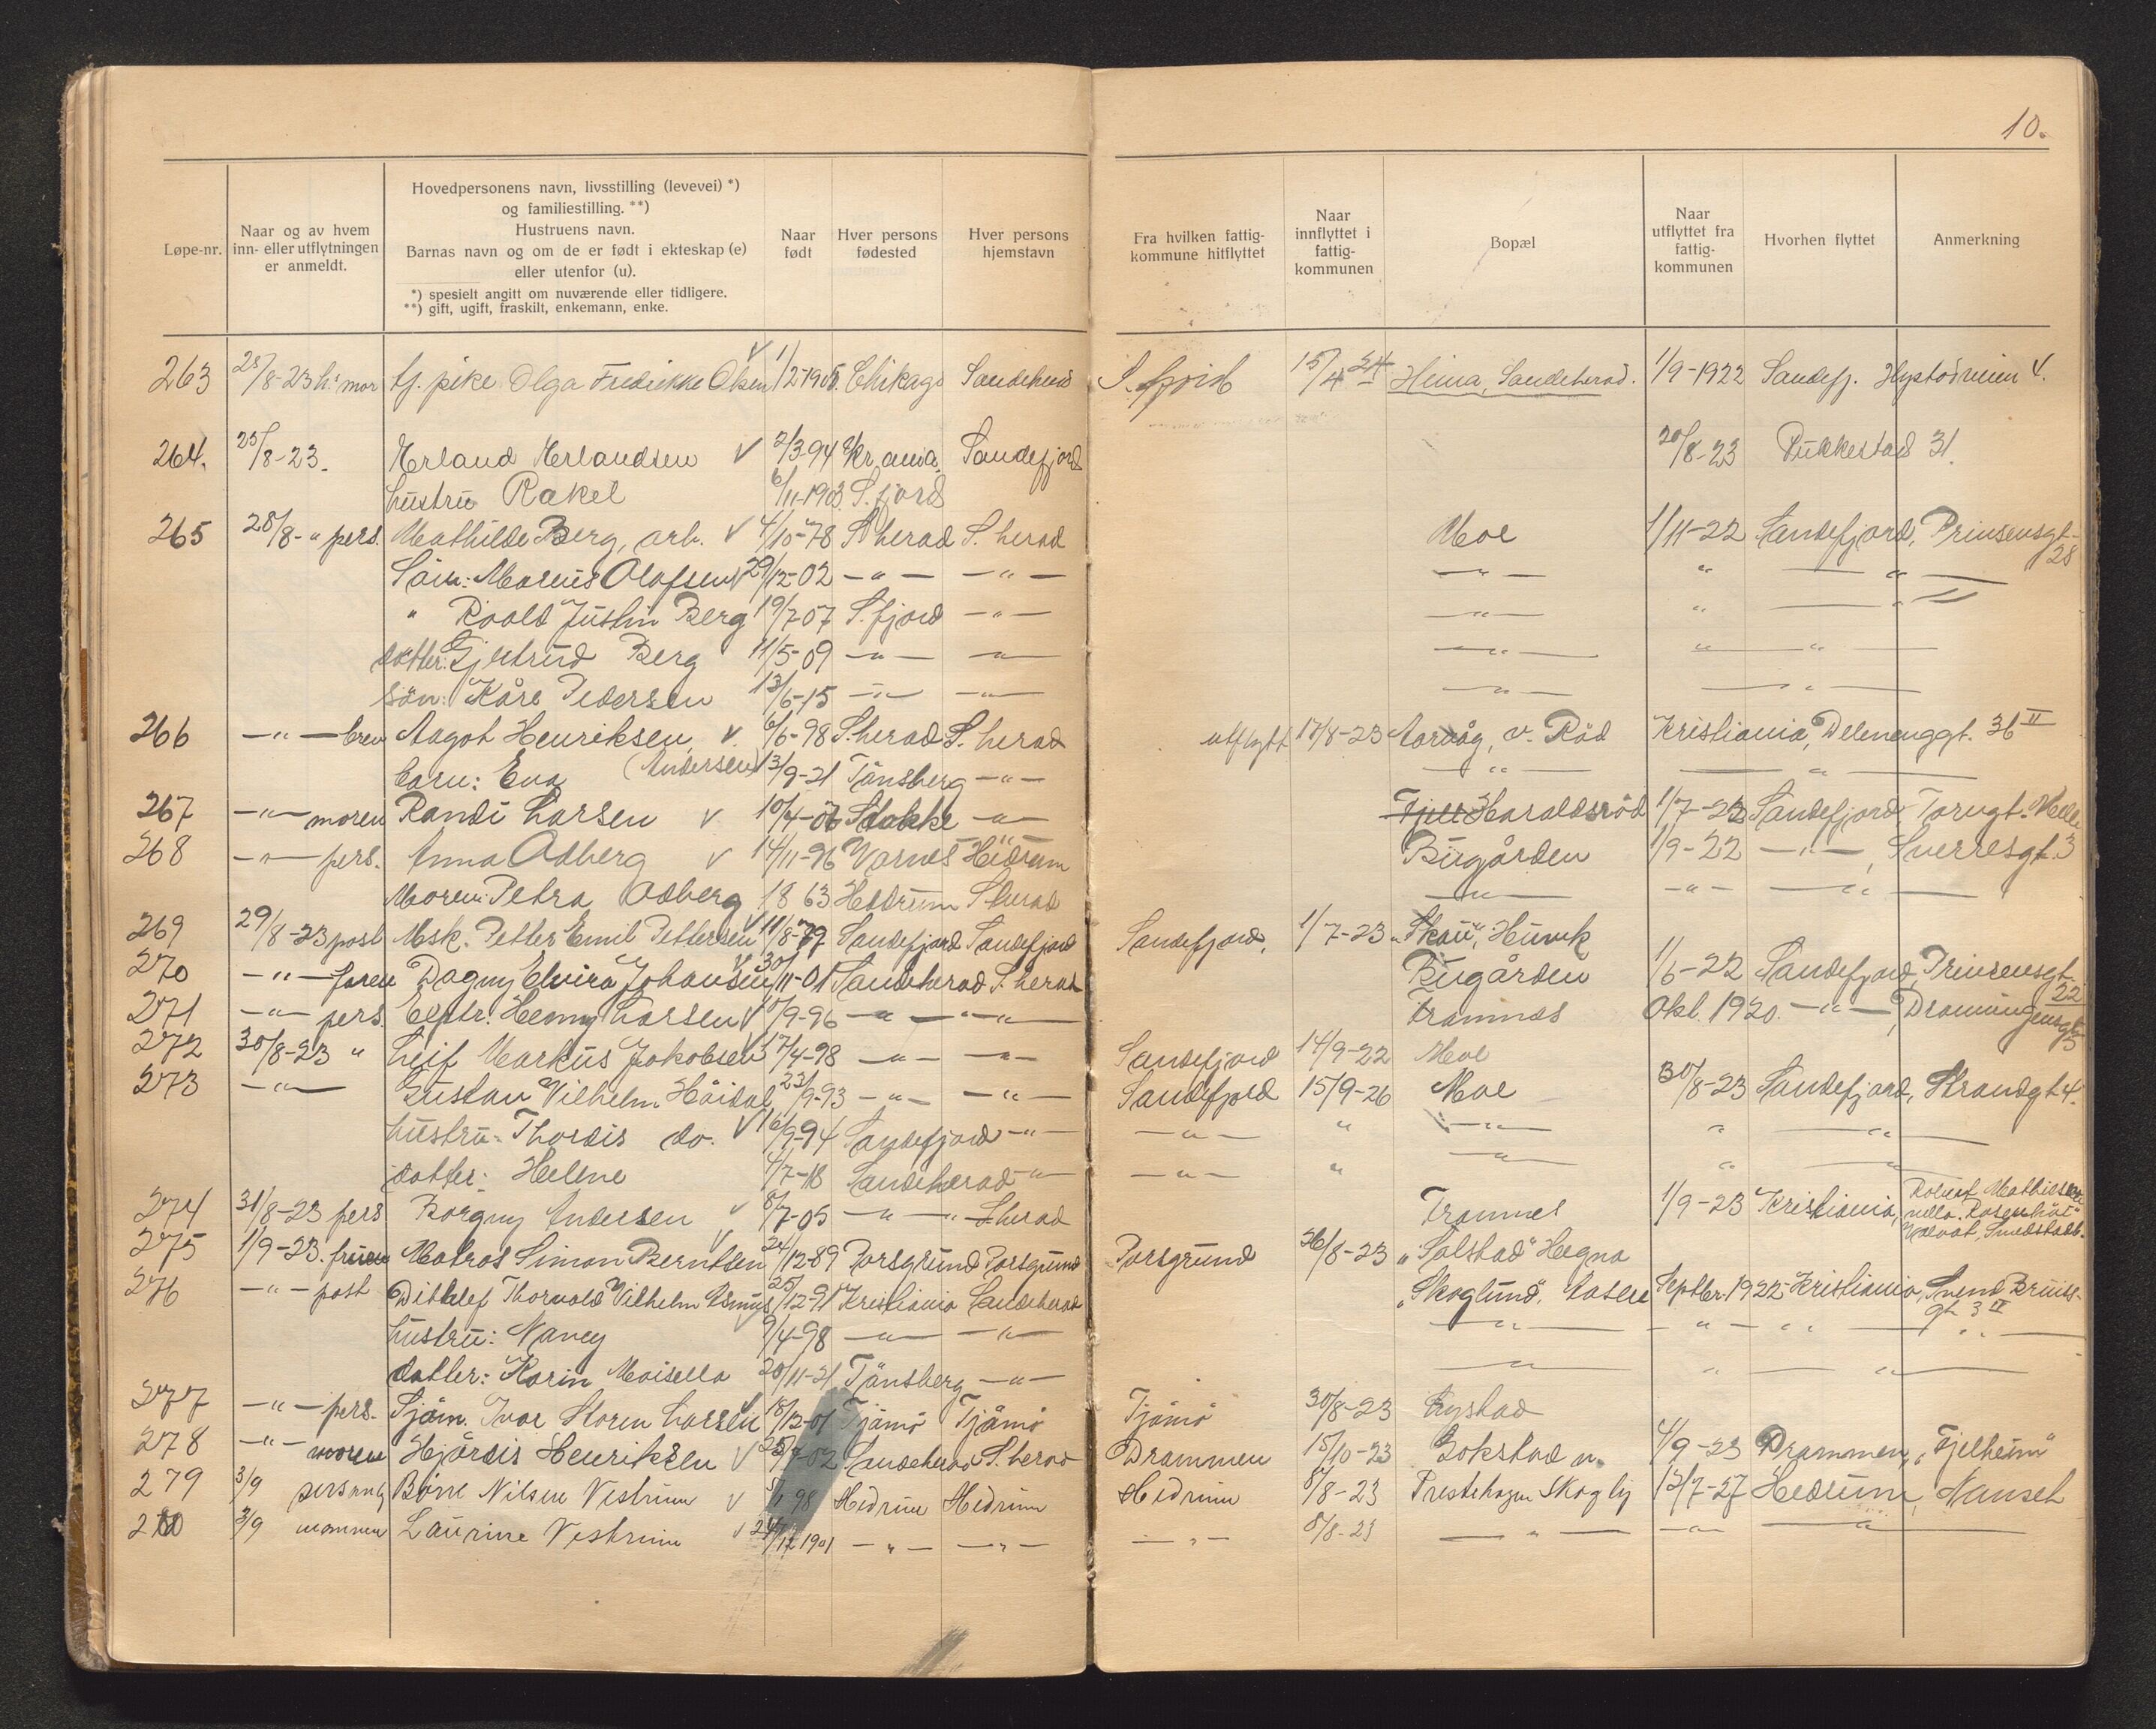 10.
Løpe-nr. | Naar og av hvem inn- eller utflytningen er anmeldt. | Hovedpersonens navn, livsstilling (levevei) *) og familiestilling. **) Hustruens navn. Barnas navn og om de er født i ekteskap (e) eller utenfor (u). *) spesielt angitt om nuværende eller tidligere. **) gift, ugift, fraskilt, enkemann, enke. | Naar født | Hver persons fødested | Hver persons hjemstavn | Fra hvilken fattig-kommune hitflyttet | Naar innflyttet i fattig-kommunen | Bopæl | Naar utflyttet fra fattig-kommunen | Hvorhen flyttet | Anmerkning
263 28/8-23 h: mor tj. pike Olga Fredrikke Olsen v 1/2-1905. Chikago Sandeherad S. fjord 15/4 24 Heima, Sandeherad. 1/9-1922 Sandefj. 4.
264. 25/8-23. Erland Erlandsen v 2/3-94 Kr.ania. Sandefjord 20/8-23 Pukkestad 31.
hustru Rakel 6/11-1903 S. fjord
265 28/8-" pers. Mathilde Berg, arb. v 4/10-78 S herad S. herad Moe 1/11-22 Sandefjord, Prinsensgt. 28
Sön: Marius Olafsen v 29/12-02 -"- -"- -"- " -"-
" Roald Justin Berg 19/7-07 S. fjord -"- -"- " -"-
datter: Gjertrud Berg 11/5-09 -"- -"- -"- " -"-
sön: Kåre Pedersen 13/6-15 -"- -"- -"- -"-
266 -"- brev Aagot Henriksen v. 6/6-98 S. herad S. herad utflytt 18/8-23 v. Röd Kristiania, Delenenggt. 36 II
barn: Eva (Andersen) 13/9-21 Tönsberg -"- -"- -"-
267 -"- moren Randi Larsen v 10/4-07 Stokke -"- Haraldsröd 1/7-22 Sandefjord, Torvgt.
268 -"- pers. Anna Odberg v 14/11-96 Varnes Hedrum Bugården 1/9-22 -"-, Sverresgt. 3
Moren: Petra Odberg 1863 Hedrum S herad -"- -"- -"-
269 29/8-23 post Msk. Petter Emil Pettersen v 11/8-79 Sandefjord Sandefjord Sandefjord. 1/7-23 "Skau", Hunvk
270 -"- faren Dagny Elvira Johansen v 30/11-01 Sandeherad S. herad Bugården 1/6-22 Sandefjord, Prinsensgt. 22
271 -"- pers. Henny Larsen v 10/9-96 -"- -"- Framnes Okt. 1920. -"-, Dronningensgt. 5
272 30/8-23 " Leif Markus Jakobsen 17/4-98 -"- -"- Sandefjord 14/9-22 Moe
273 -"- Gustav Vilhelm Höidal 23/9-93 -"- -"- Sandefjord 15/9-26 Moe 30/8-23 Sandefjord, Strandgt 4.
hustru: Thordis do. v 16/9-94 Sandefjord -"- -"- " -"- " -"-
datter: Helene 4/7-18 Sandeherad -"- -"- " -"- " -"-
274 31/8-23 pers Borgny Andersen v 8/7-05 -"- S herad Framnes 1/9-23 Kristiania, Robert Mathisen villa "Rosenhöi"
275 1/9-23. fruen Matros Simon Berntsen v 24/12-89 Porsgrund Porsgrund Porsgrund 26/8-23 "Solstad" Hegna
276 -"- post Ditklef Thorvald Vilhelm Asmus 25/12-91 Kristiania Sandeherad "Skoglund", Aasen Septbr. 1922 Kristiania, Svend Bruuns-gt. 3 II
hustru: Nancy 9/4-98 -"- -"- -"- -"- -"- -"-
datter: Karin Maisella 20/11-21 Tönsberg -"- -"- " -"-
277 -"- pers. Sjöm. Ivar Storm Larsen v 18/12-01 Tjömö Tjömö Tjömö 30/8-23 Lystad
278 -"- moren Hjördis Henriksen v 25/7-02 Sandeherad S. herad Drammen 15/10-23 Gokstad n. 4/9-23 Drammen, "Fjelheim"
279 3/9 personlig Börre Nilsen Vestrum v 5/1 98 Hedrum Hedrum Hedrum 8/8-23 Prestehagen Skogly 13/7-27 Hedrum, Nanset
280 3/9 mannen Laurine Vestrum v 24/12 1901 -"- -"- -"- 8/8-23 -"- -"- -"-